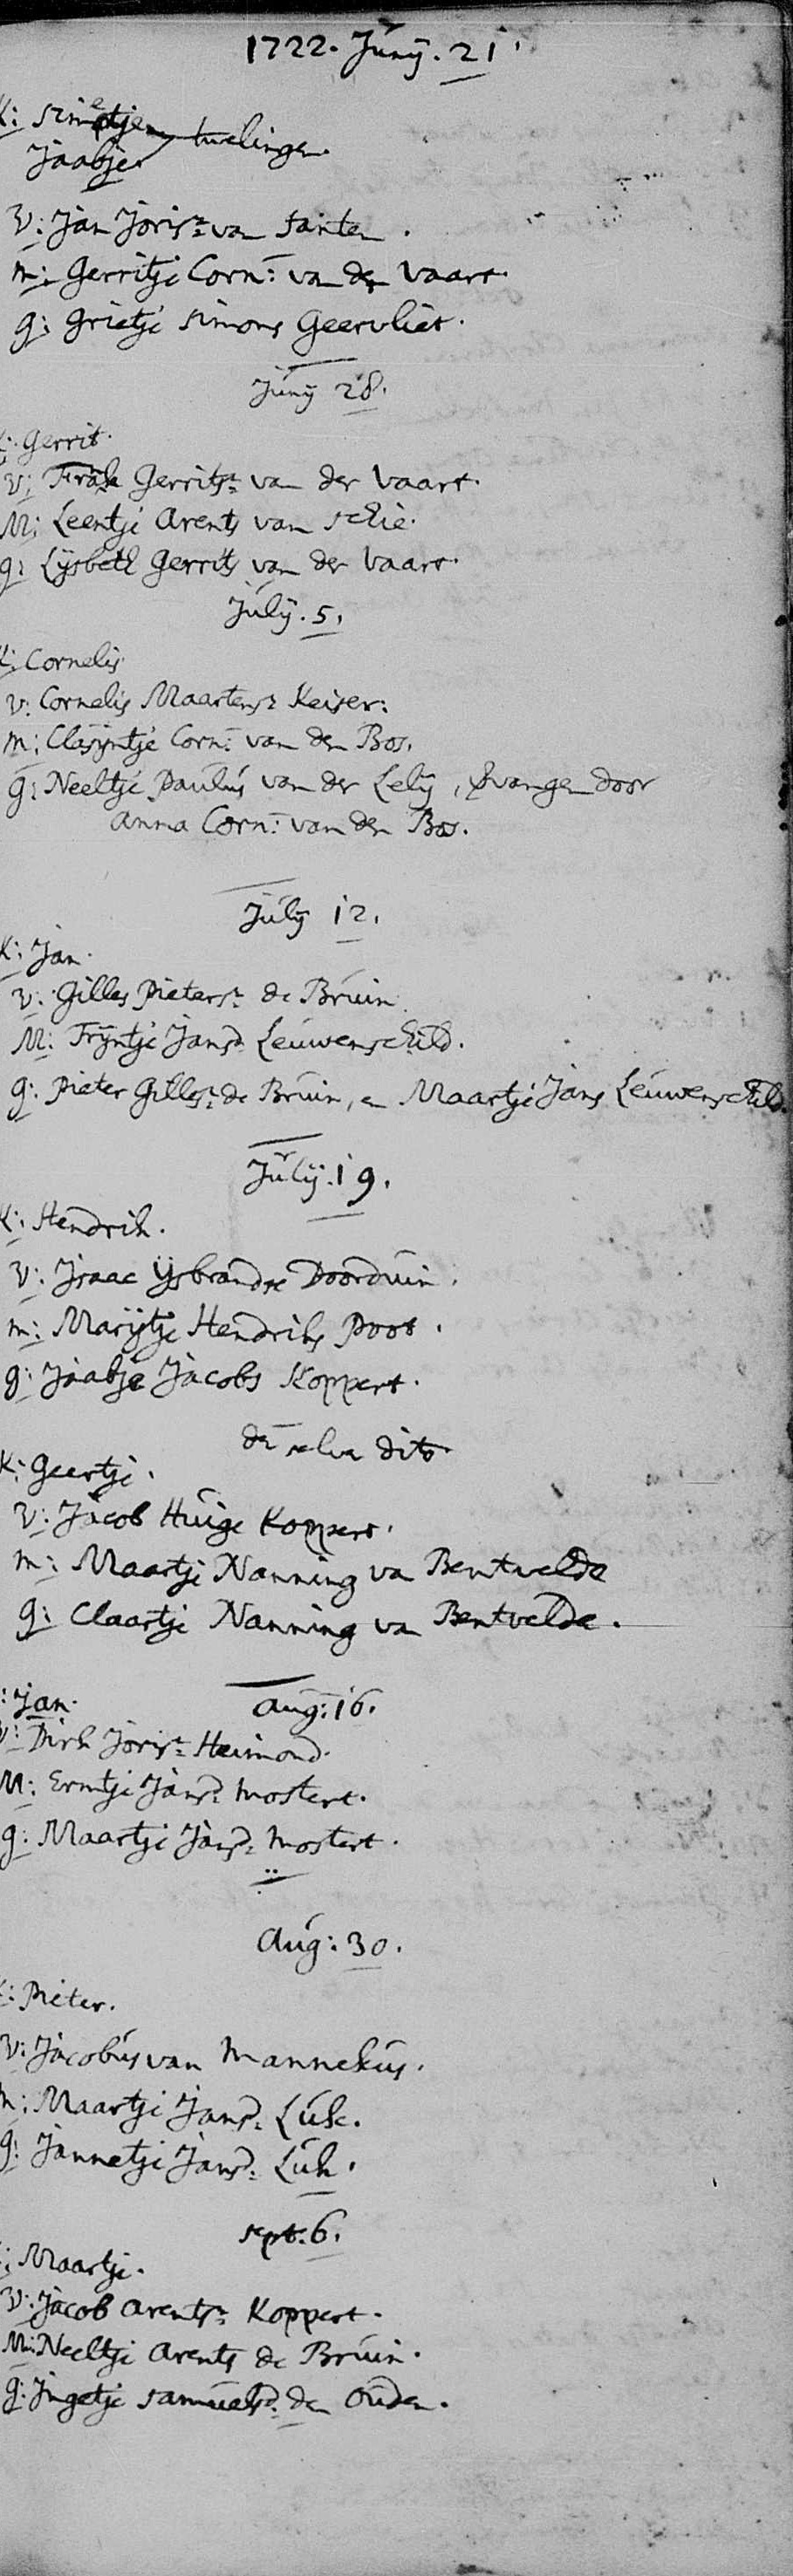 1722. Junÿ. 21.
K: Simetje
Jaabje twelingen.
V: Jan Joris: van Santen.
m: Gerritje Corn: van der Vaart.
g: Grietje Simons Geervliet.
Junÿ 28.
K: Gerrit.
V: Frāk Gerrits: van der Vaart.
M: Leentje Arents van Schie.
g: Lijsbeth Gerrits van der Vaart.
Julÿ. 5.
K: Cornelis
V: Cornelis Maartens: Keiser:
m: Clasijntje Corn: van den Bos.
g: Neeltje Paulus van der Lelÿ, vvangen door
Anna Corn: van den Bos.
Julÿ 12.
K: Jan.
V: Gilles Pieters: de Bruin
M: Trijntje Jansd Leuwenschild.
g: Pieter Gilles: de Bruin, en Maartje Jans Leuwenschild.
Julÿ. 19.
K: Hendrik.
V: Isaac IJsbrandse Doorduin.
m: Marijtje Hendriks Poot.
g: Jaabje Jacobs Koppert.
de selve dito
K: Geertje.
V: Jacob Huige Koppert.
m: Maartje Nanning va Bentvelde
g: Claartje Nanning va Bentvelde.
Aug: 16.
: Jan.
V: Dirk Joris: Heimond.
M: Ermtje Jansd: Mostert.
g: Maartje Jansd: Mostert.
Aug: 30.
K: Pieter.
V: Jacobus van Mannekus.
m: Maartje Jansd: Luk.
g: Jannetje Jansd: Luk.
Sept. 6.
: Maartje.
V: Jacob Arents: Koppert.
M: Neeltje Arents de Bruin.
g: Ingetje Samuelsd: den Ouden.